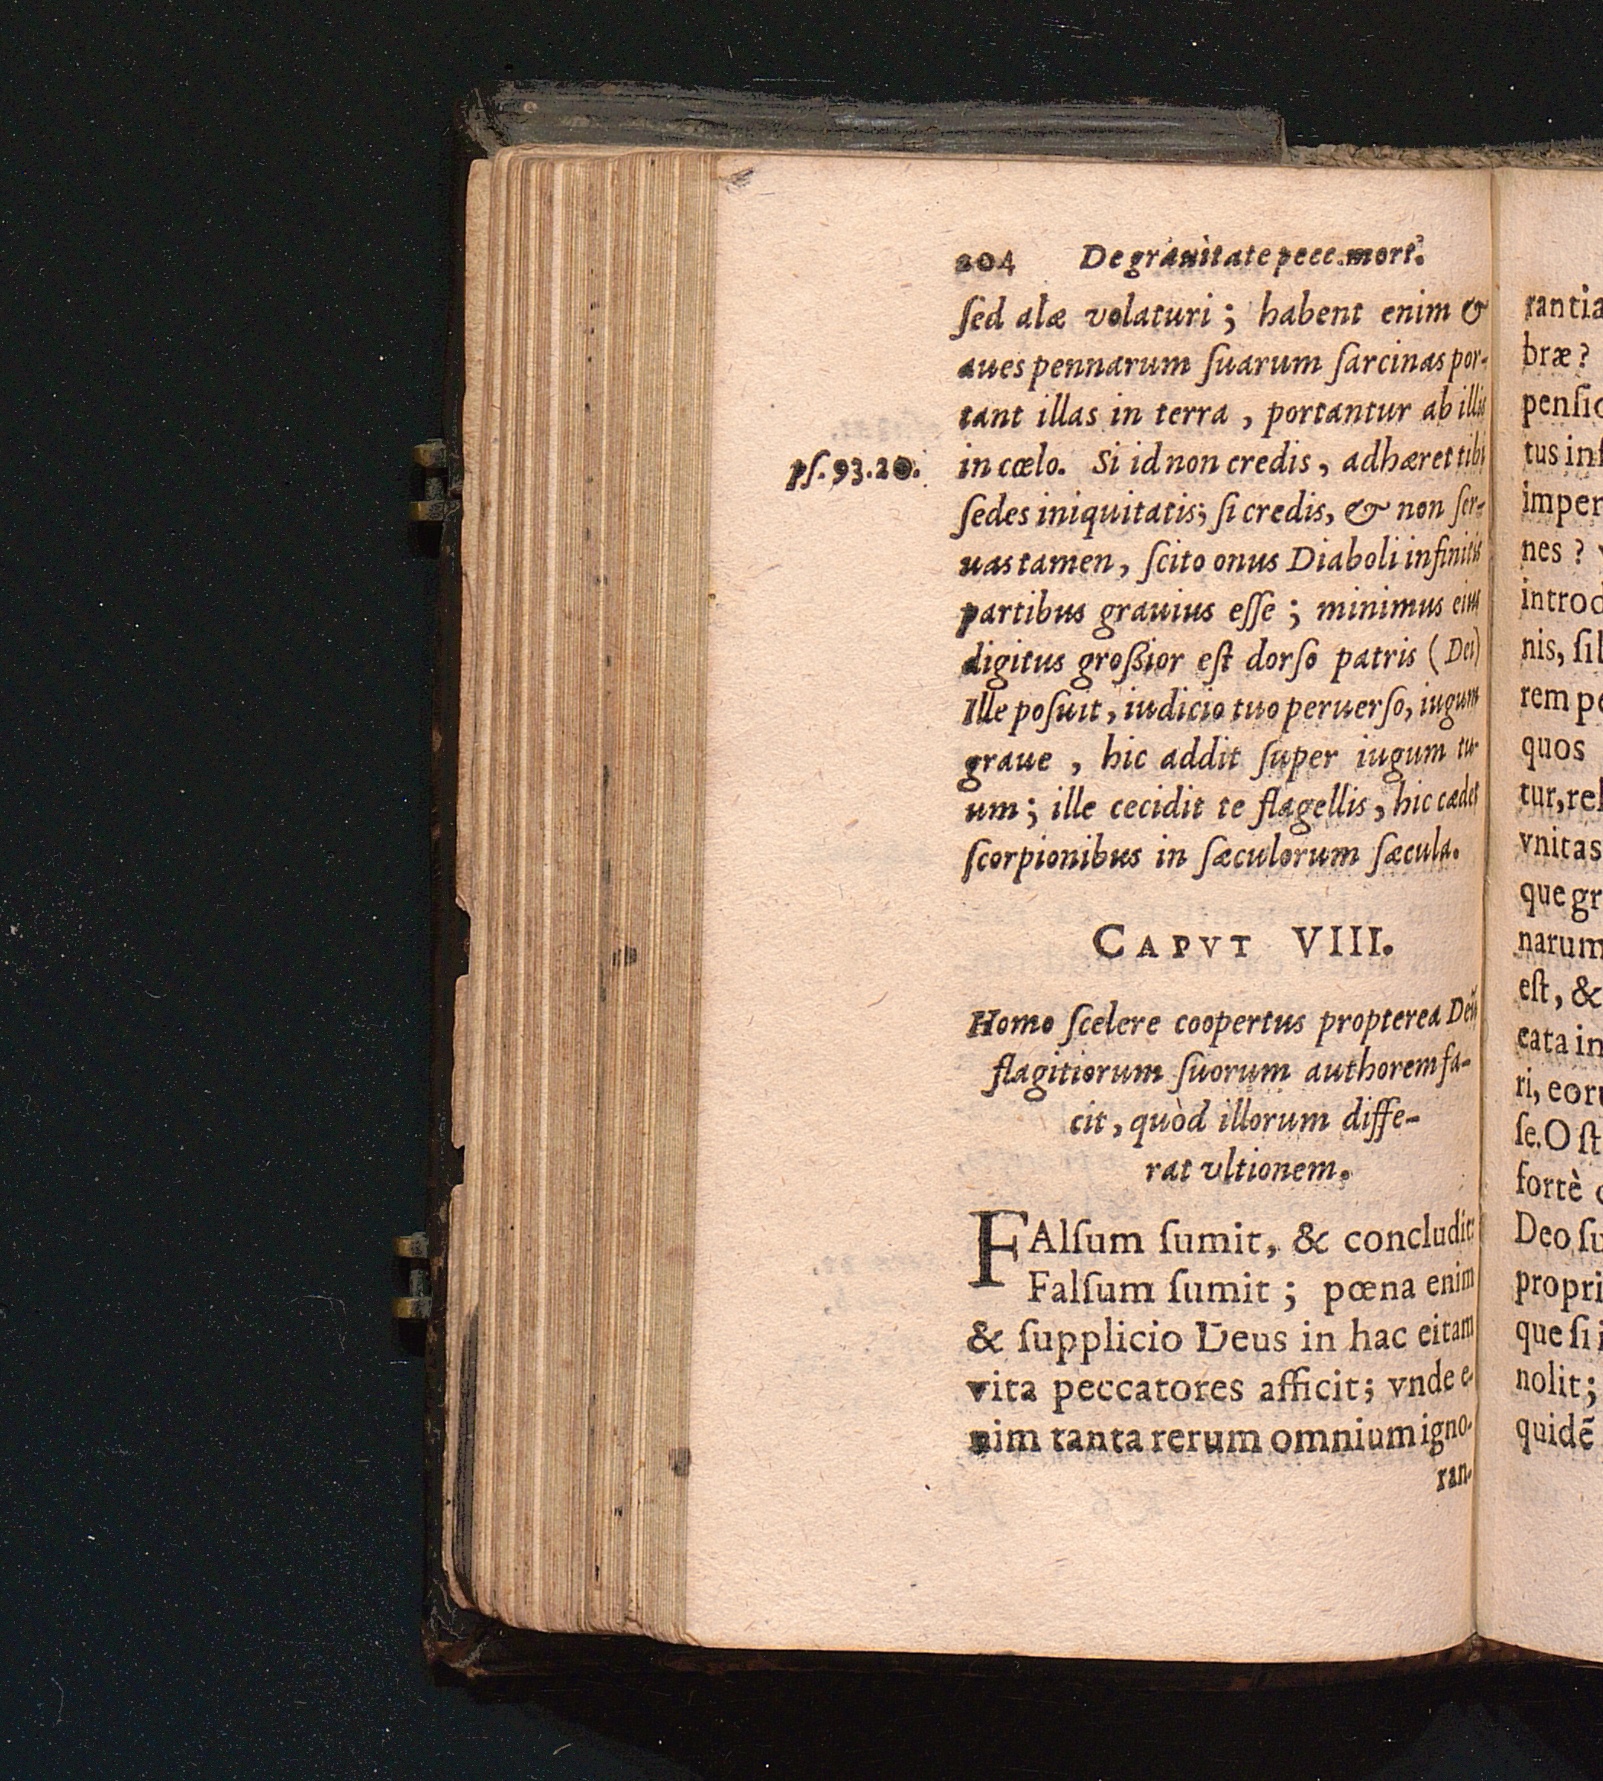 204 De grauitate pecc. mort.
ſed alæ volaturi ; habent enim &
aues pennarum ſuarum ſarcinas por-
tant illas in terra , portantur ab illis
pſ. 93.20. in cœlo. Si id non credis , adhæret tibi
ſedes iniquitatis; ſi credis, & non ſer-
uas tamen , ſcito onus Diaboli infinitis
partibus grauius eſſe ; minimus eius
digitus groſsior eſt dorſo patris ( Dei)
Ille poſuit , iudicio tuo peruerſo, iugum
graue , hic addit ſuper iugum tu-
um ; ille cecidit te flagellis , hic cædet
ſcorpionibus in ſæculorum ſæcula.
CAPVT VIII.
Homo ſcelere coopertus propterea Deū
flagitiorum ſuorum authorem fa-
cit , quòd illorum diffe-
rat vltionem.
FAlſum ſumit, & concludit:
Falſum ſumit ; pœna enim
& ſupplicio Deus in hac eitam
vita peccatores afficit; vnde e-
nim tanta rerum omnium igno-
ran-
rantia
bræ ?
penſio
tus inf
imper
nes ?
introd
nis, ſil
rem pe
quos
tur, rel
vnitas
que gr
narum
eſt , &
cata in
ri, eoru
ſe. O ſt
fortè
Deo ſu
propri
que ſi i
nolit ;
quidē